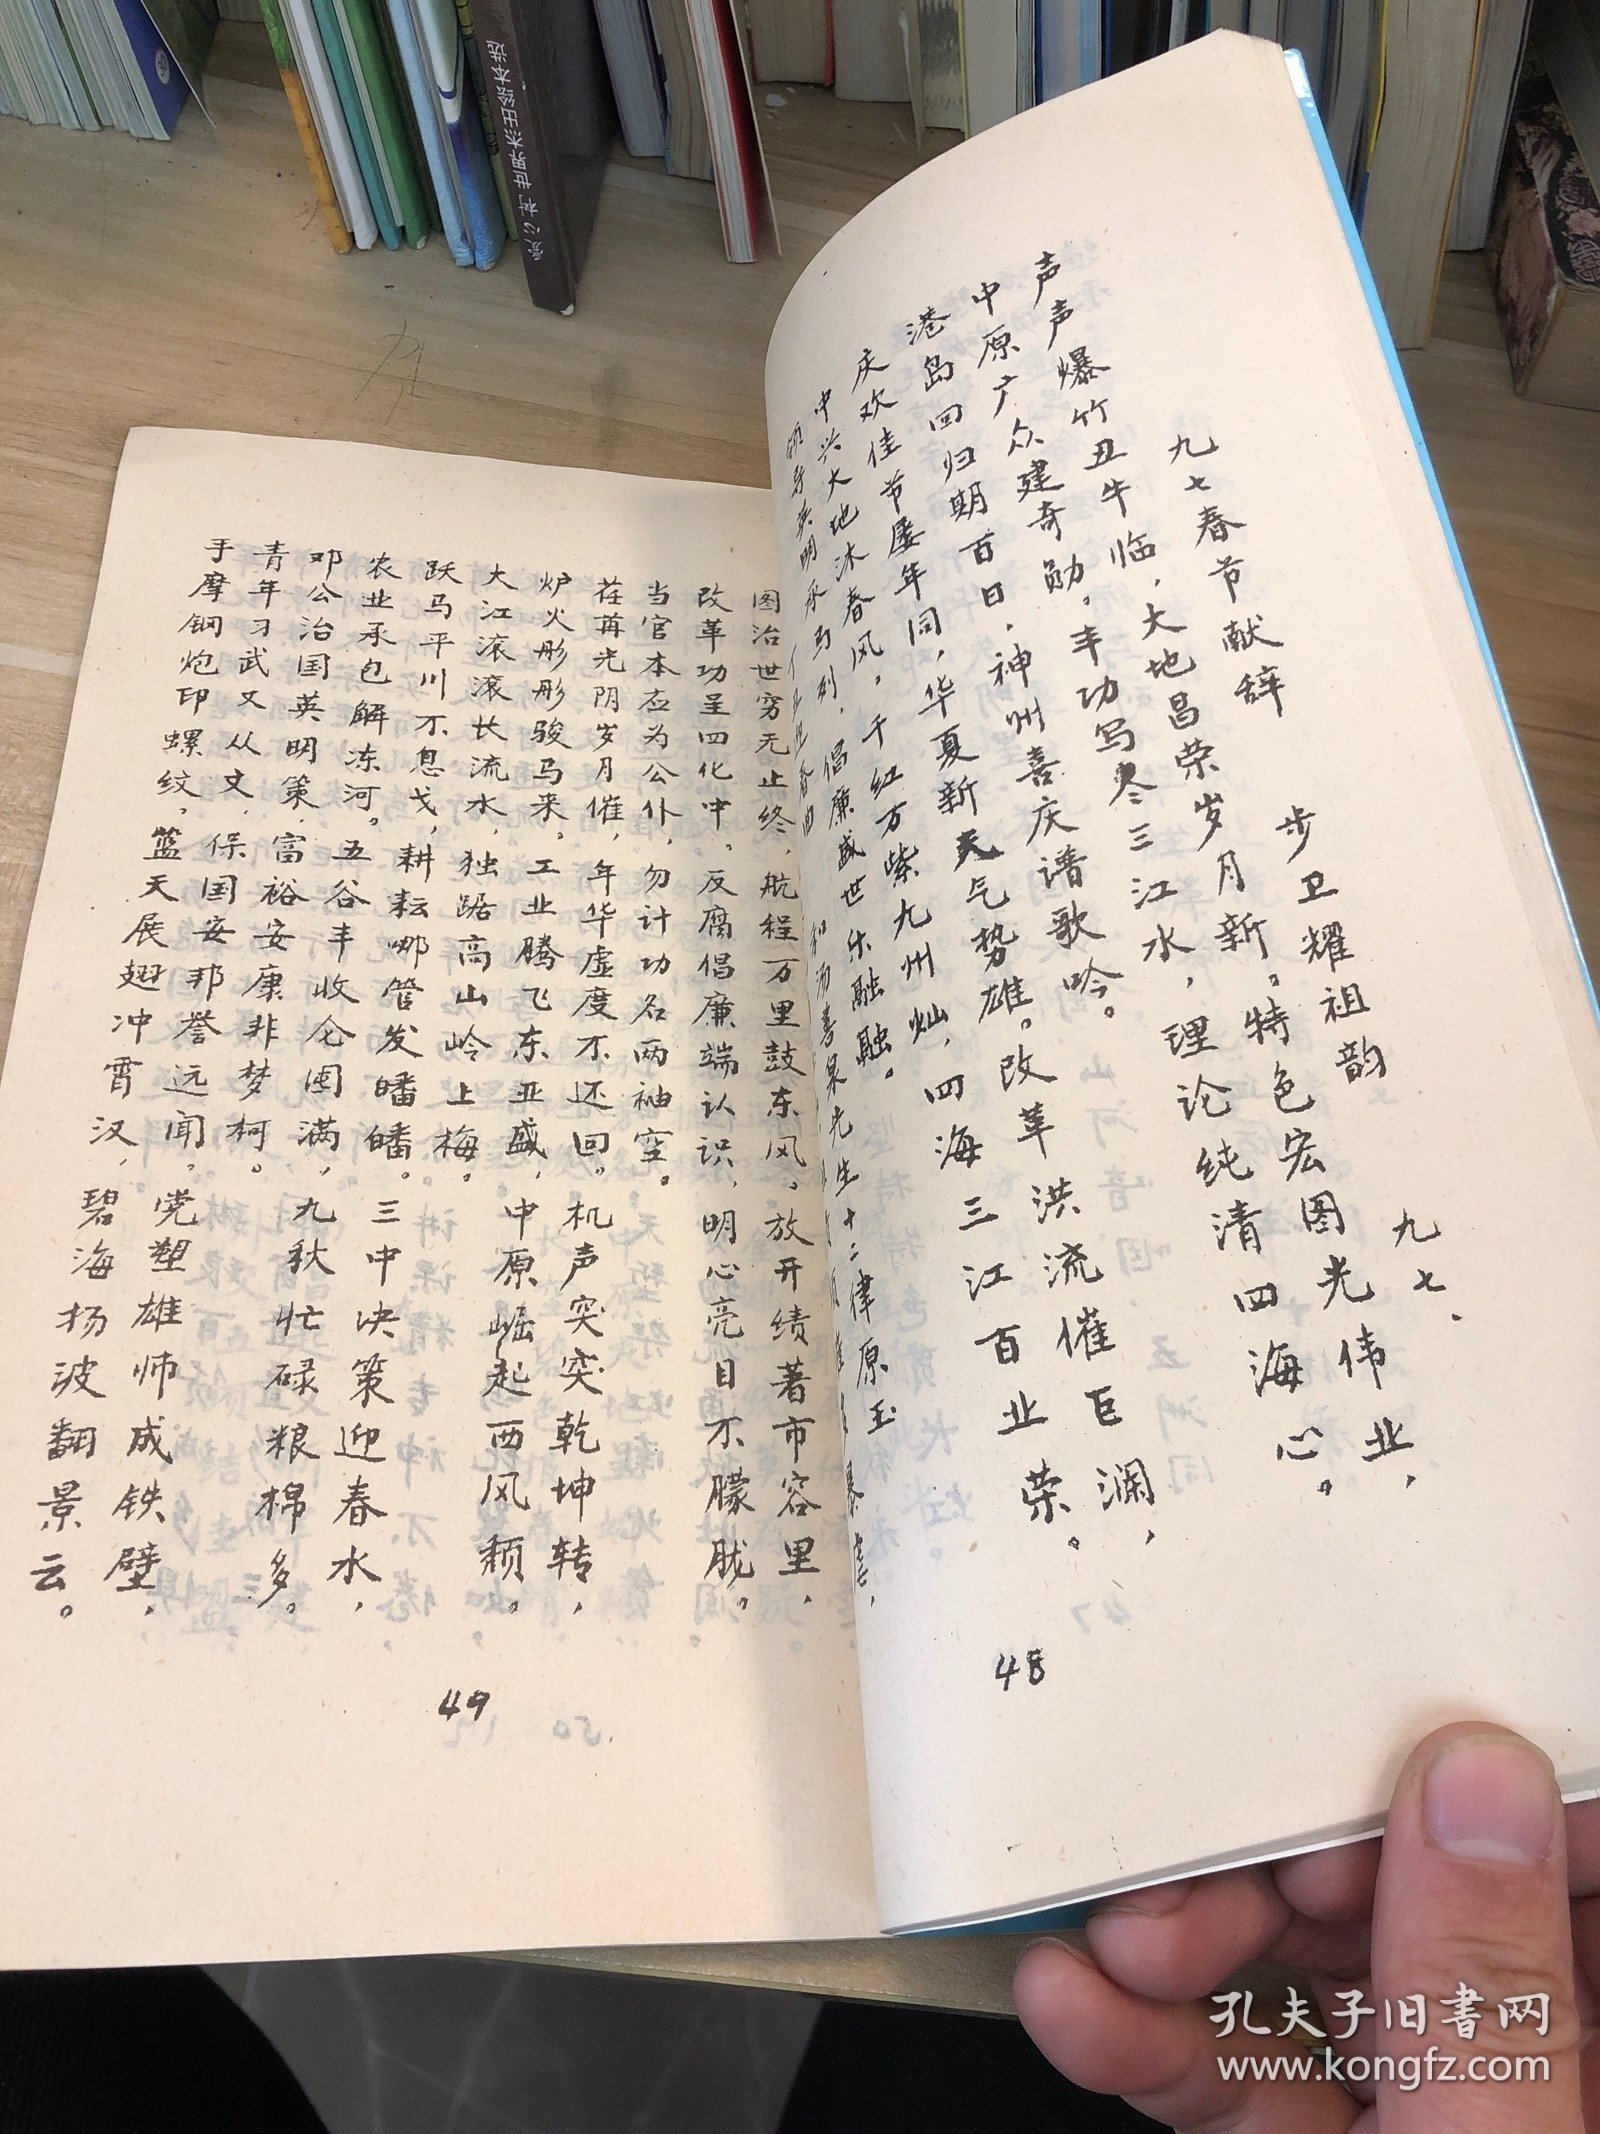 九七春节献辞 步卫耀祖韵 九七、
声声爆竹丑牛临，大地昌荣岁月新。特色宏图光伟业，
中原广众建奇勋。丰功写尽三江水，理论纯清四海心。
港岛回归期百日，神州喜庆谱歌吟。
庆欢佳节屡年同，华夏新天气势雄。改革洪流催巨澜，
中兴大地沐春风。千红万紫九州灿，四海三江百业荣。
领导英明承马列，倡廉盛世乐融融。
丁丑迎春曲 和汤喜泉先生十二律原玉
48
图治世穷无止终，航程万里鼓东风。放开绩著市容里，
改革功呈四化中。反腐倡廉端认识，明心亮目不朦胧。
当官本应为公仆，勿计功名两袖空。
荏苒光阴岁月催，年华虚度不还回。机声突突乾坤转，
炉火彤彤骏马来。工业腾飞东亚盛，中原崛起西风颓。
大江滚滚长流水，独踞高山岭上梅。
跃马平川不息戈，耕耘哪管发皤皤。三中决策迎春水，
农业承包解冻河。五谷丰收仓囤满，九秋忙碌粮棉多。
邓公治国英明策，富裕安康非梦柯。
青年习武又从文，保国安邦誉远闻。党塑雄师成铁壁，
手摩钢炮印螺纹。篮天展翅冲霄汉，碧海扬波翻景云。
49
世界杰出绘本选
孔夫子旧书网
www.kongfz.com